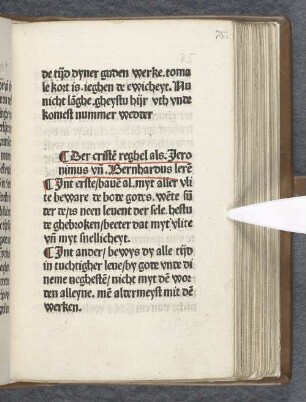 76.
de tijd dyner guden werke. toma
le kort is. ieghen de ewicheyt. Nu
nicht lãghe. gheystu hijr vth vnde
komest nummer wedder
¶ Der erstẽ reghel als. Jero
nimus vñ. Bernhardus lerẽ
¶ Int erste/ bauẽ al. myt aller vli
te beware de bode gotes. wẽte sũ
der te/is neen leuent der sele. hestu
te ghebroken/beeter dat myt vlite
vñ myt snellicheyt.
¶ Int ander/ bewys dy alle tijd
in tuchtigher leue/by gote vnde di
neme neghestẽ/ nicht myt dẽ wor
ten alleyne. mẽ altermeyst mit dẽ
werken.